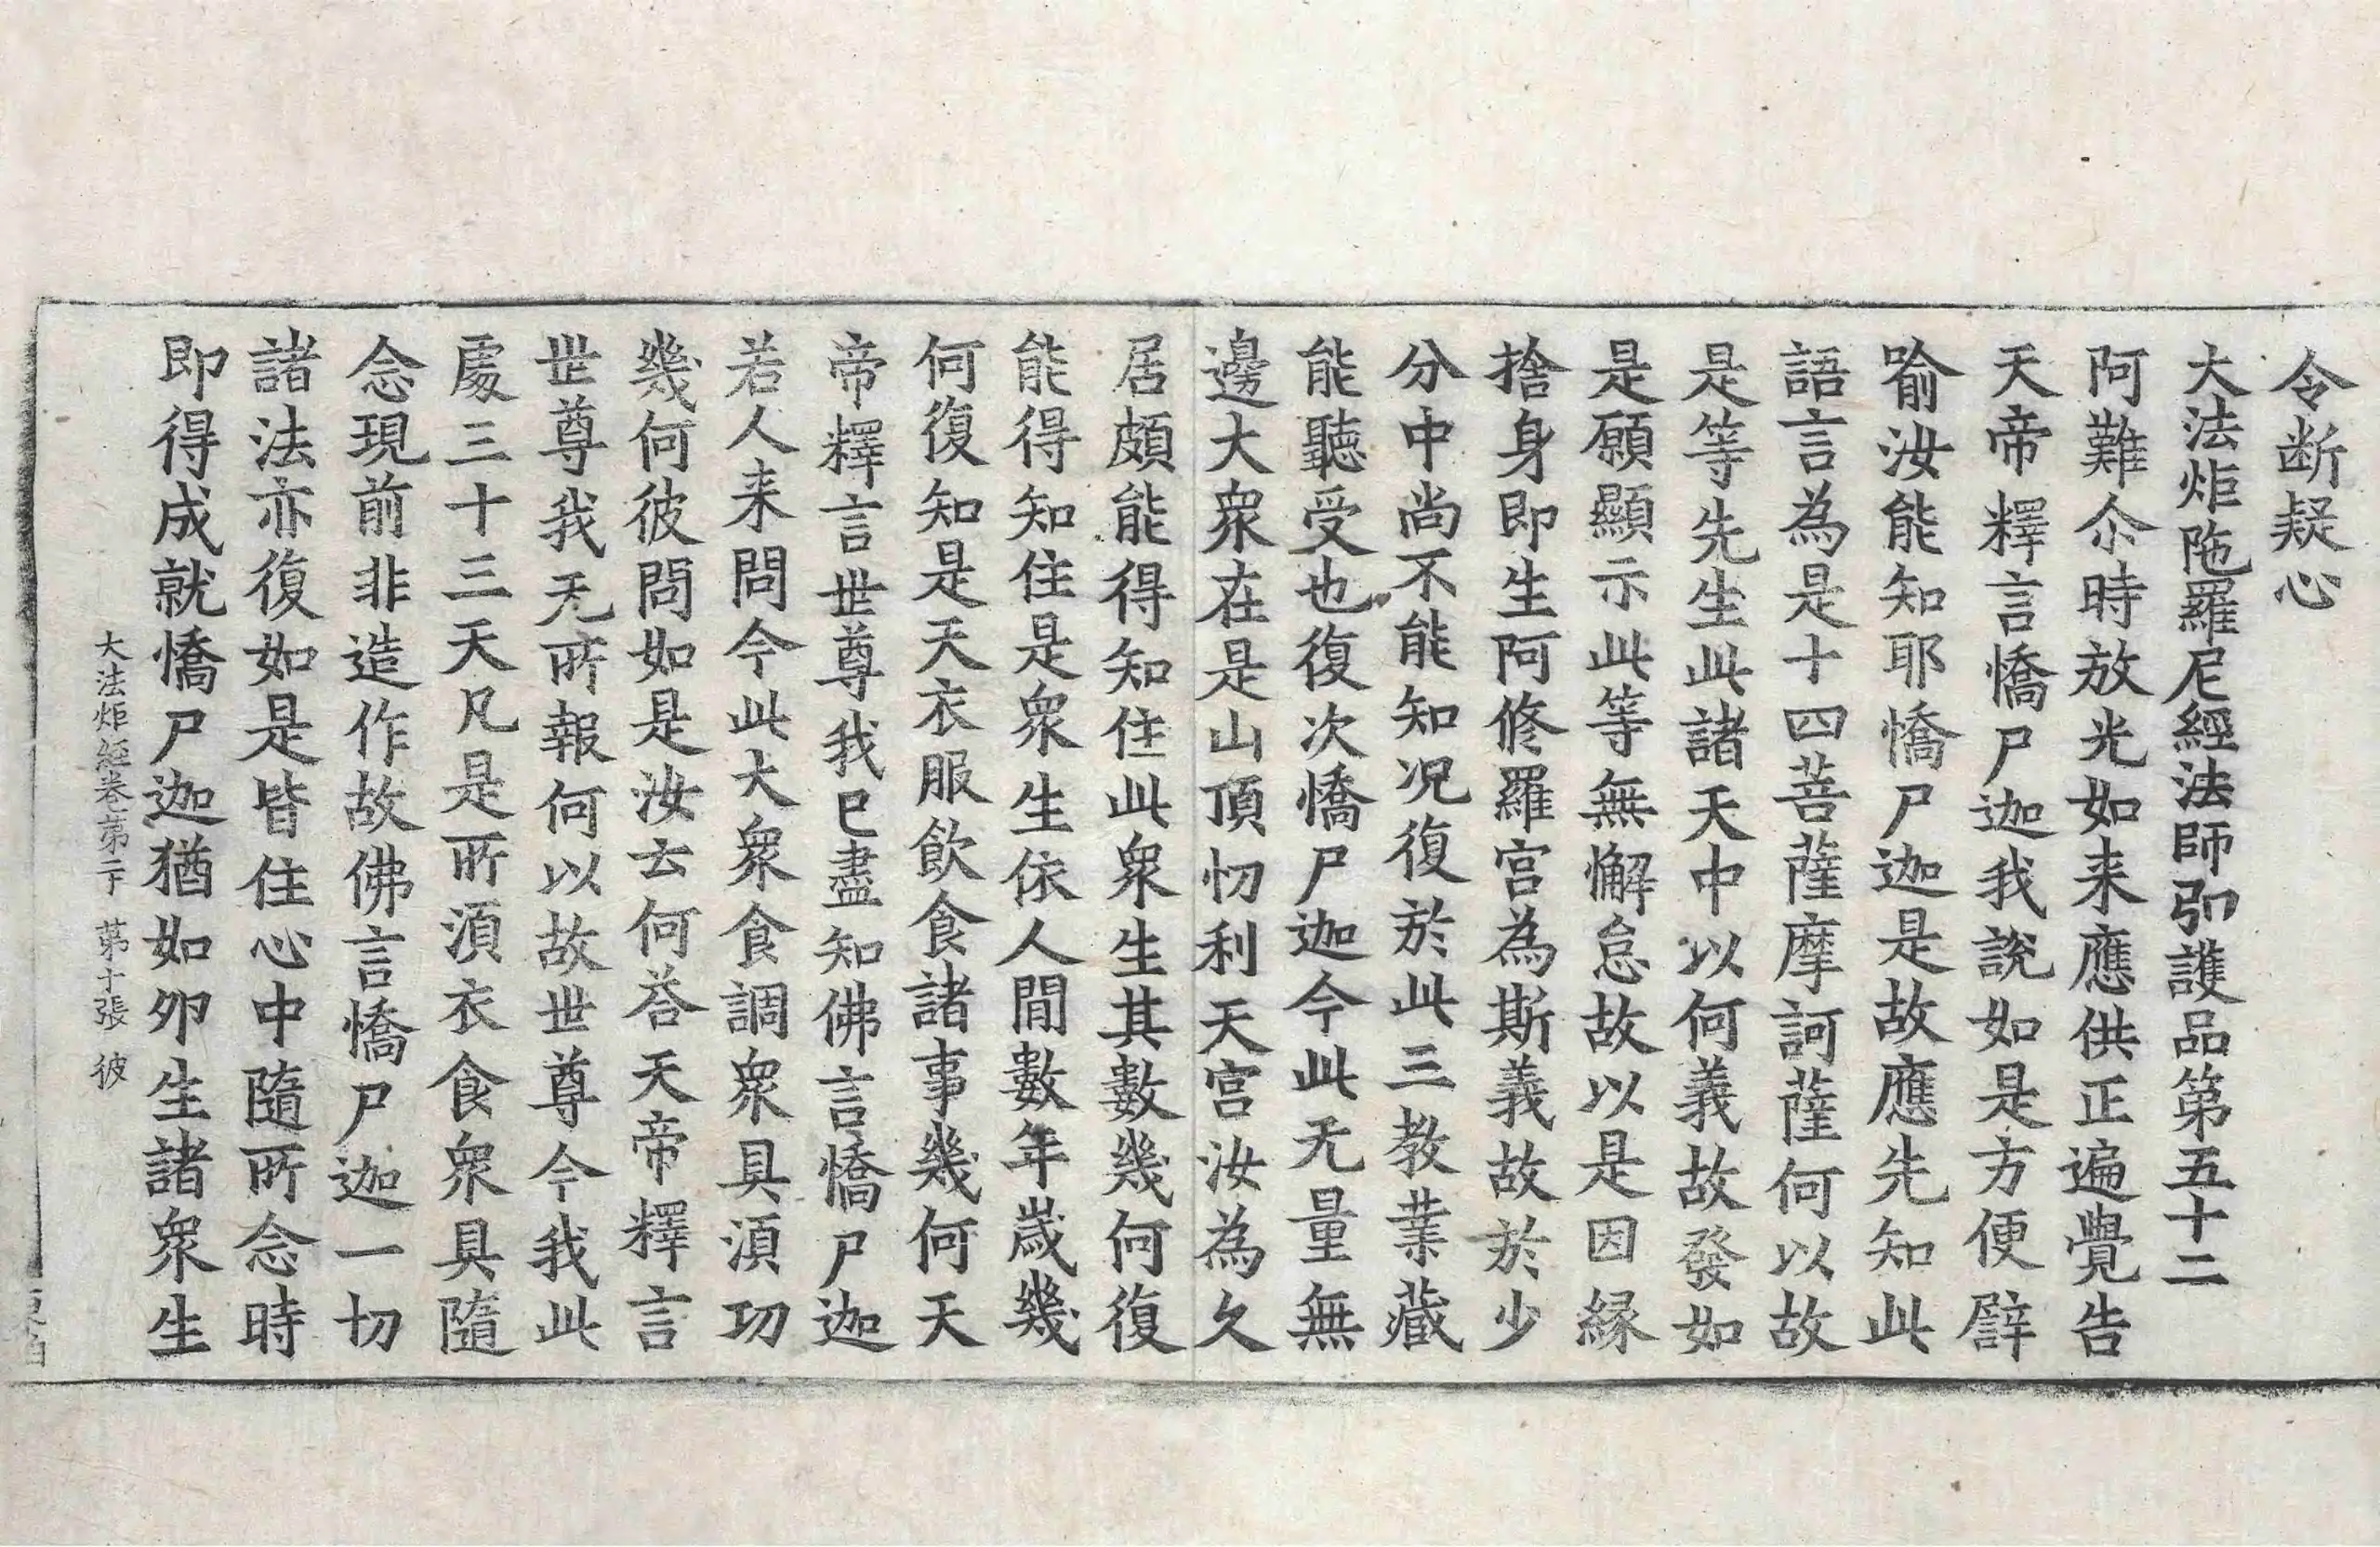 令断疑心
大法炬陁羅尼經法師弘護品第五十二
阿難尒時放光如来應供正遍覺告
天帝釋言憍尸迦我說如是方便譬
喻汝能知耶憍尸迦是故應先知此
語言為是十四菩薩摩訶薩何以故
是等先生此諸天中以何義故發如
是願顯示此等無懈怠故以是因縁
捨身即生阿修羅宫為斯義故於少
分中尚不能知况復於此三教業藏
能聽受也復次憍尸迦今此无量無
邊大衆在是山頂忉利天宫汝為久
居頗能得知住此衆生其數幾何復
能得知住是衆生依人間數年歲幾
何復知是天衣服飲食諸事幾何天
帝釋言世尊我已盡知佛言憍尸迦
若人来問今此大衆食調衆具湏功
幾何彼問如是汝云何荅天帝釋言
世尊我无所報何以故世尊今我此
處三十三天凡是所湏衣食衆具隨
念現前非造作故佛言憍尸迦一切
諸法亦復如是皆住心中隨所念時
即得成就憍尸迦猶如卵生諸衆生
大法炬經卷第二十 第十張 彼